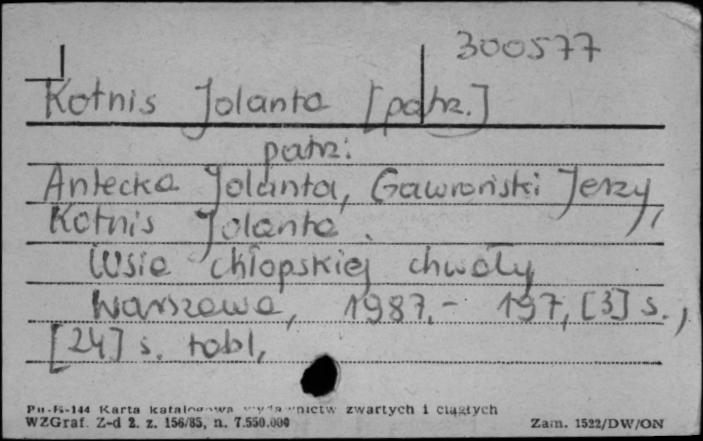 300577
Kotnis Jolanta [patrz.]
patrz:
Antecka Jolanta, Gawroński Jerzy,
Kotnis Jolanta.
Wsie chłopskiej chwały
Warszawa, 1987.- 197, [3] s.,
[24] s. tabl.
Pu-K-144 Karta katalogowa wydawnictw zwartych i ciągłych
WZGraf. Z-d 2. z. 156/85, n. 7.550.000
Zam. 1522/DW/ON